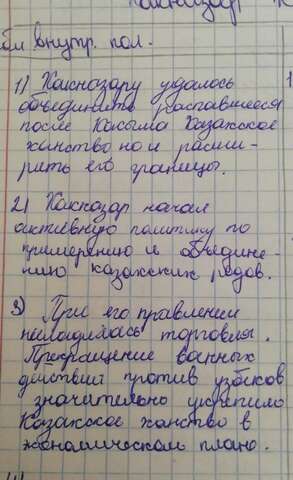 Хакназар
бл внутр. пол.
1) Хакназару удалось
объединить распавшееся
после Касыма Казахское
ханство но и расши-
рить его границы.
2) Хакназар начал
активную политику по
примерению и объедине-
нию казахских родов.
3) При его правлении
наладилась торговля.
Прекращение военных
действий против узбеков
значительно укрепило
Казахское ханство в
экономическом плане.